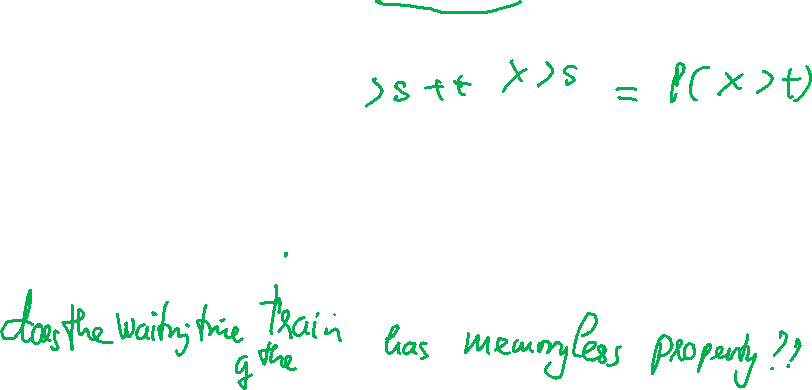 >s+t X>s = P(X>t)
does the waiting time train
of the has memoryless property??